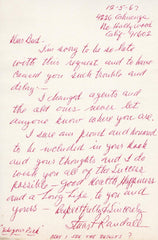 12-5-67
4226 Cahuenga
No. Hollywood
Calif. 91602
Dear Bud:
I'm song to be so late
with this request and to have
caused you such trouble and
delay: —
I changed agents and
the old ones never let
anyone know where you are.
I sure am proud and honored
to be included in your book
and your thoughts and I do
wish you all of the success
possible — Good Health, Happiness
and a Long Life to you and
yours — Respectfully & Sincerely
Stuart Randall
MAY I SEE THE RESULTS ?